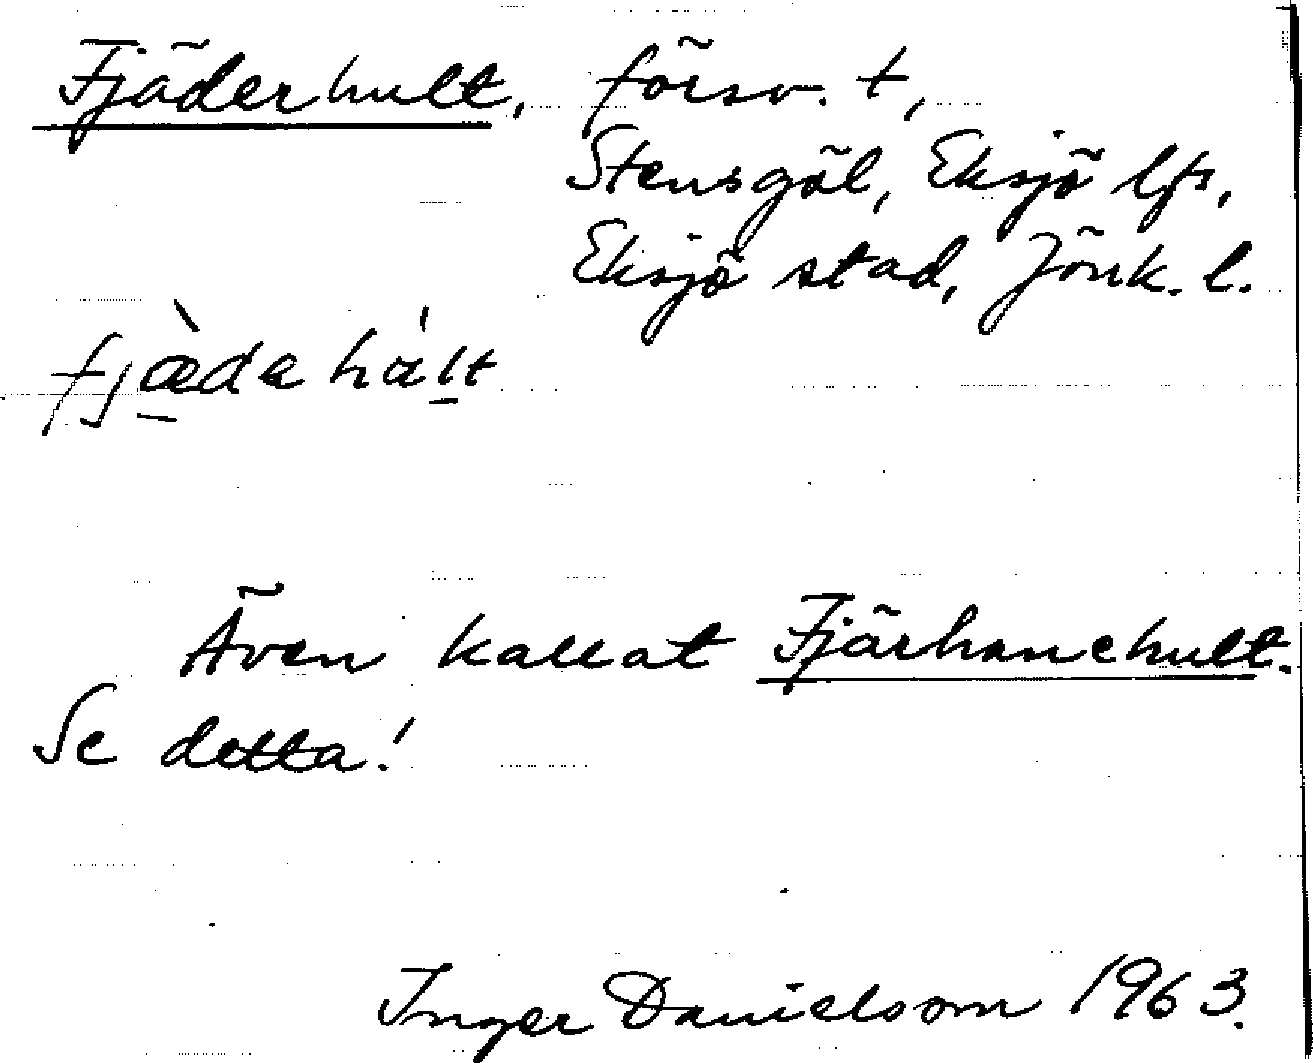 Fjäderhult, försv. t,
Stensgöl, Eksjö lfs,
Eksjö stad, Jönk. l.
fjæ̀dahált
Även kallat Fjärhanehult.
Se detta!
Inger Danielsom 1963.